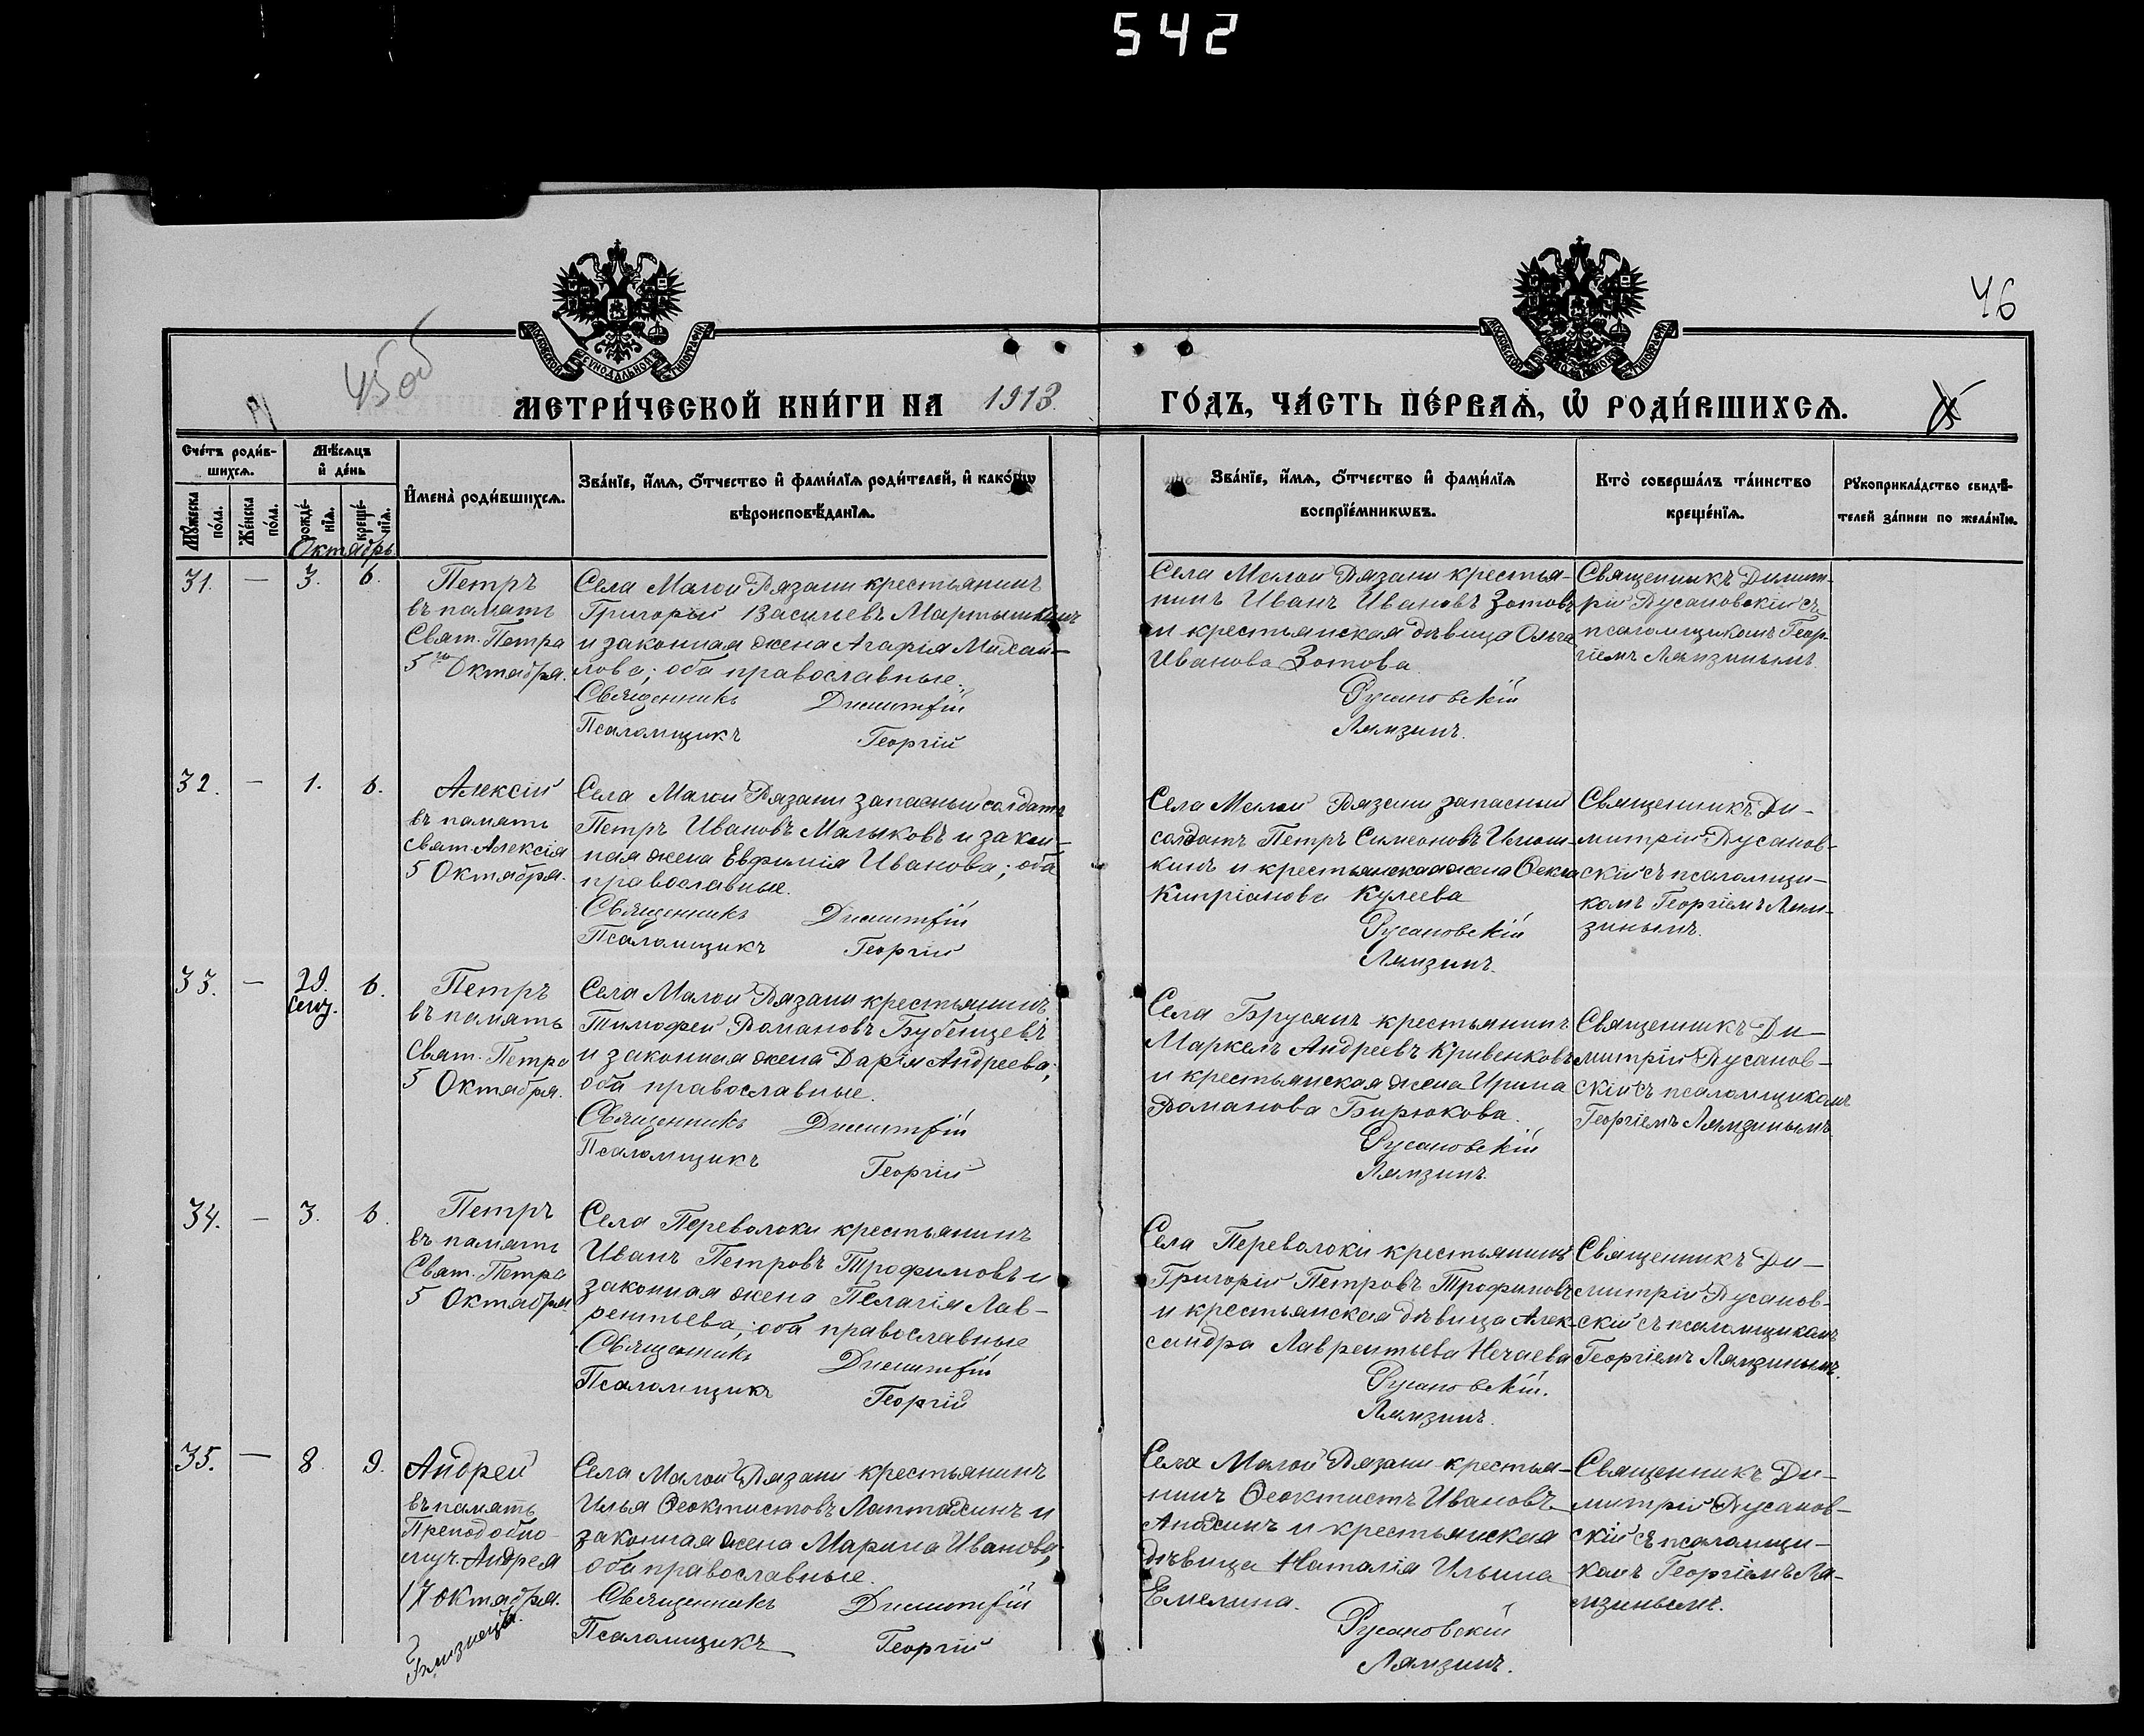 542
46
45об
МЕТРИ́ЧЕСКОЙ КНИ́ГИ НА 1913.
ГО́ДЪ, ЧА́СТЬ ПЕ́РВАѦ, Ѡ҆ РОДИ́ВШИХСѦ.
Сче́тъ роди́в-
шихсѧ.
Мѣ́сѧцъ
и҆ де́нь
Мꙋ́жеска по́ла.
Же́нска по́ла.
рожде́-нїѧ.
креще́-нїѧ.
И҆мена̀ роди́вшихсѧ.
Зва́нїе, и҆́мѧ, ѻ҆́тчество и҆ фами́лїѧ роди́телей, и҆ како́гѡ
вѣроисповѣ́данїѧ.
Зва́нїе, и҆́мѧ, ѻ҆́тчество и҆ фами́лїѧ
воспрїе́мникѡвъ.
Кто̀ соверша́лъ та́инство
креще́нїѧ.
Рꙋкоприкла́дство свидѣ́-
телей за́писи по жела́нїю.
Октябрь
31. — 3. 6.
Петръ
въ память
Свят. Петра
5го Октября.
Села Малой Рязани крестьянинъ
Григорій Васильевъ Мартышкинъ
и законная жена Агафія Михай-
лова; оба православные.
Священникъ Димитрій
Псаломщикъ Георгій
Села Малой Рязани крестья-
нинъ Иванъ Ивановъ Зотовъ
и крестьянская дѣвица Ольга
Иванова Зотова.
Русановскій
Лямзинъ.
Священникъ Димит-
рій Русановскій съ
псаломщикомъ Геор-
гіемъ Лямзинымъ.
32. — 1. 6.
Алексій
въ память
свят. Алексія
5 Октября.
Села Малой Рязани запасный солдатъ
Петръ Ивановъ Малыковъ и закон-
ная жена Евфимія Иванова; оба
православные.
Священникъ Димитрій
Псаломщикъ Георгій
Села Малой Рязани запасный
солдатъ Петръ Симеоновъ
и крестьянская жена Ѳекла
Кипріанова Кулеева
Русановскій
Лямзинъ.
Священникъ Ди-
митрій Русанов-
скій съ псаломщи-
комъ Георгіемъ Лям-
зинымъ.
33. — 29. 6.
Сент.
Петръ
въ память
Свят. Петра
5 Октября.
Села Малой Рязани крестьянинъ
Тимофей Романовъ Бубенцевъ
и законная жена Дарія Андреева;
оба православные.
Священникъ Димитрій
Псаломщикъ Георгій
Села Брусянъ крестьянинъ
Маркелъ Андреевъ Кривенковъ
и крестьянская жена Ирина
Романова Бирюкова.
Русановскій
Лямзинъ.
Священникъ Ди-
митрій Русанов-
скій съ псаломщикомъ
Георгіемъ Лямзинымъ
34. — 3. 6.
Петръ
въ память
Свят. Петра
5 Октября.
Села Переволоки крестьянинъ
Иванъ Петровъ Трофимовъ и
законная жена Пелагія Лав-
рентьева; оба православные
Священникъ Димитрій
Псаломщикъ Георгій
Села Переволоки крестьянинъ
Григорій Петровъ Трофимовъ
и крестьянская дѣвица Алек-
сандра Лаврентьева Нечаева
Русановскій.
Лямзинъ.
Священникъ Ди-
митрій Русанов-
скій съ псаломщикомъ
Георгіемъ Лямзинымъ.
35. — 8. 9.
Андрей
въ память
Преподобно-
муч. Андрея
17 Октября.
Близнецы.
Села Малой Рязани крестьянинъ
Илья Ѳеоктистовъ Лаптажинъ и
законная жена Марина Иванова;
оба православные.
Священникъ Димитрій
Псаломщикъ Георгій
Села Малой Рязани крестья-
нинъ Ѳеоктистъ Ивановъ
и крестьянская
дѣвица Наталія Ильина
Емелина.
Русановскій
Лямзинъ.
Священникъ Ди-
митрій Русанов-
скій съ псаломщи-
комъ Георгіемъ Ля-
мзинымъ.